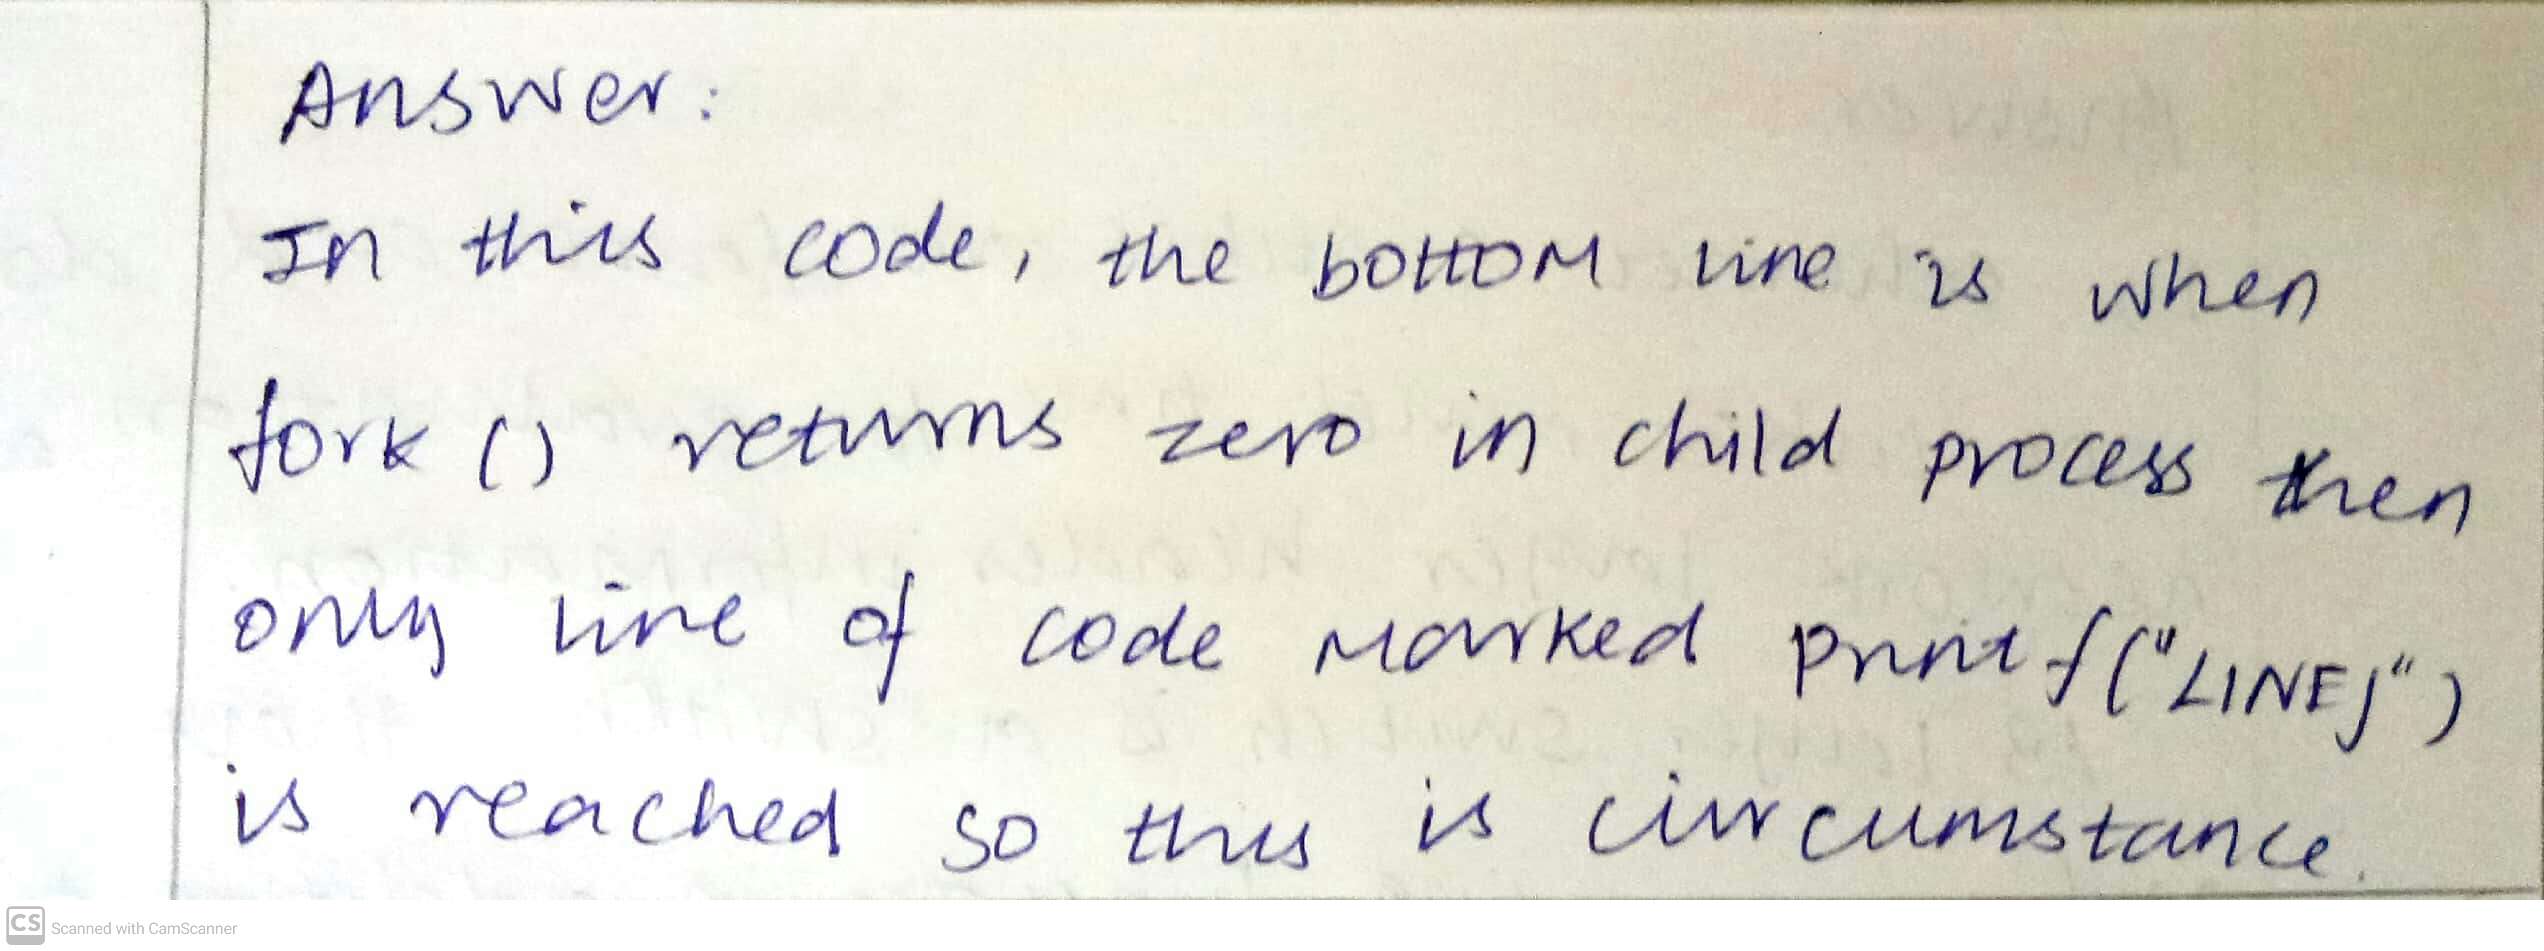 Answer:
In this code, the bottom line is when
fork () returns zero in child process then
only line of code marked printf("LINEJ")
is reached so this is circumstance.
CS Scanned with CamScanner